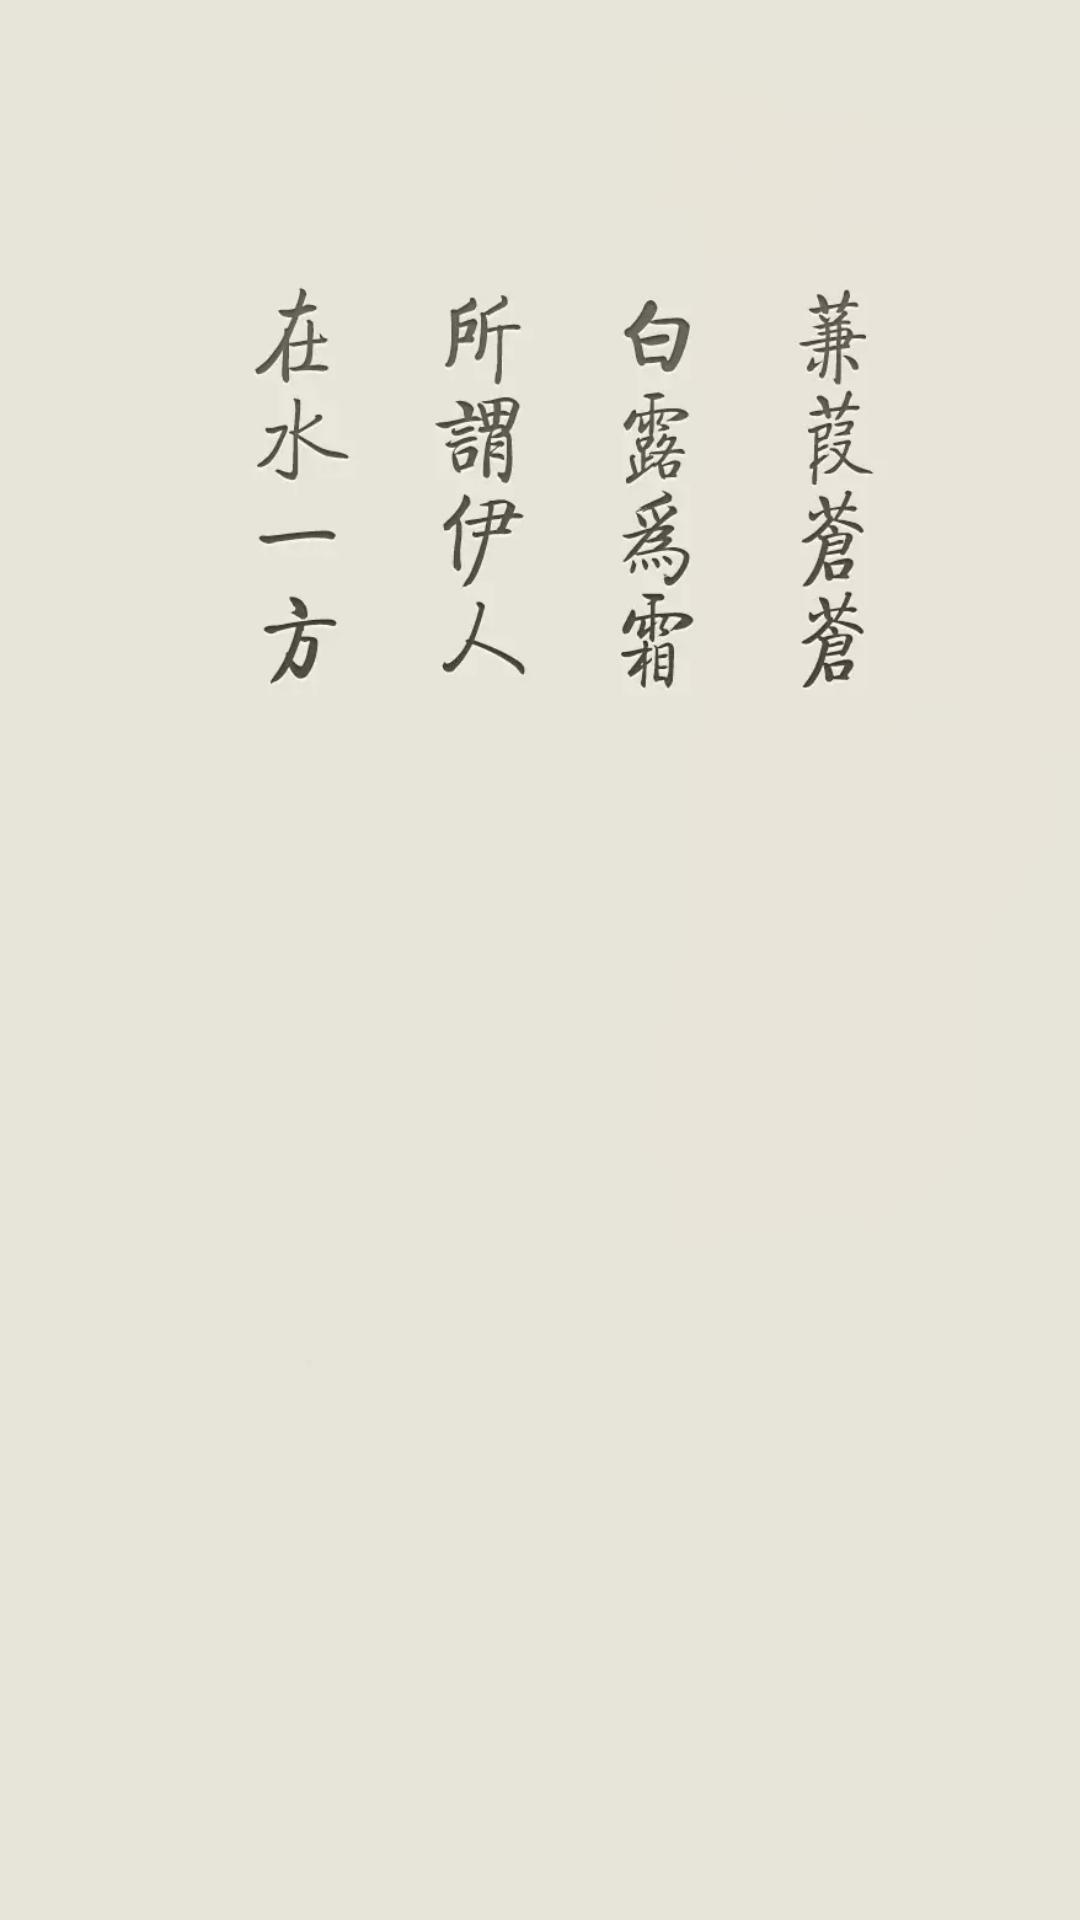 蒹葭蒼蒼
白露爲霜
所謂伊人
在水一方